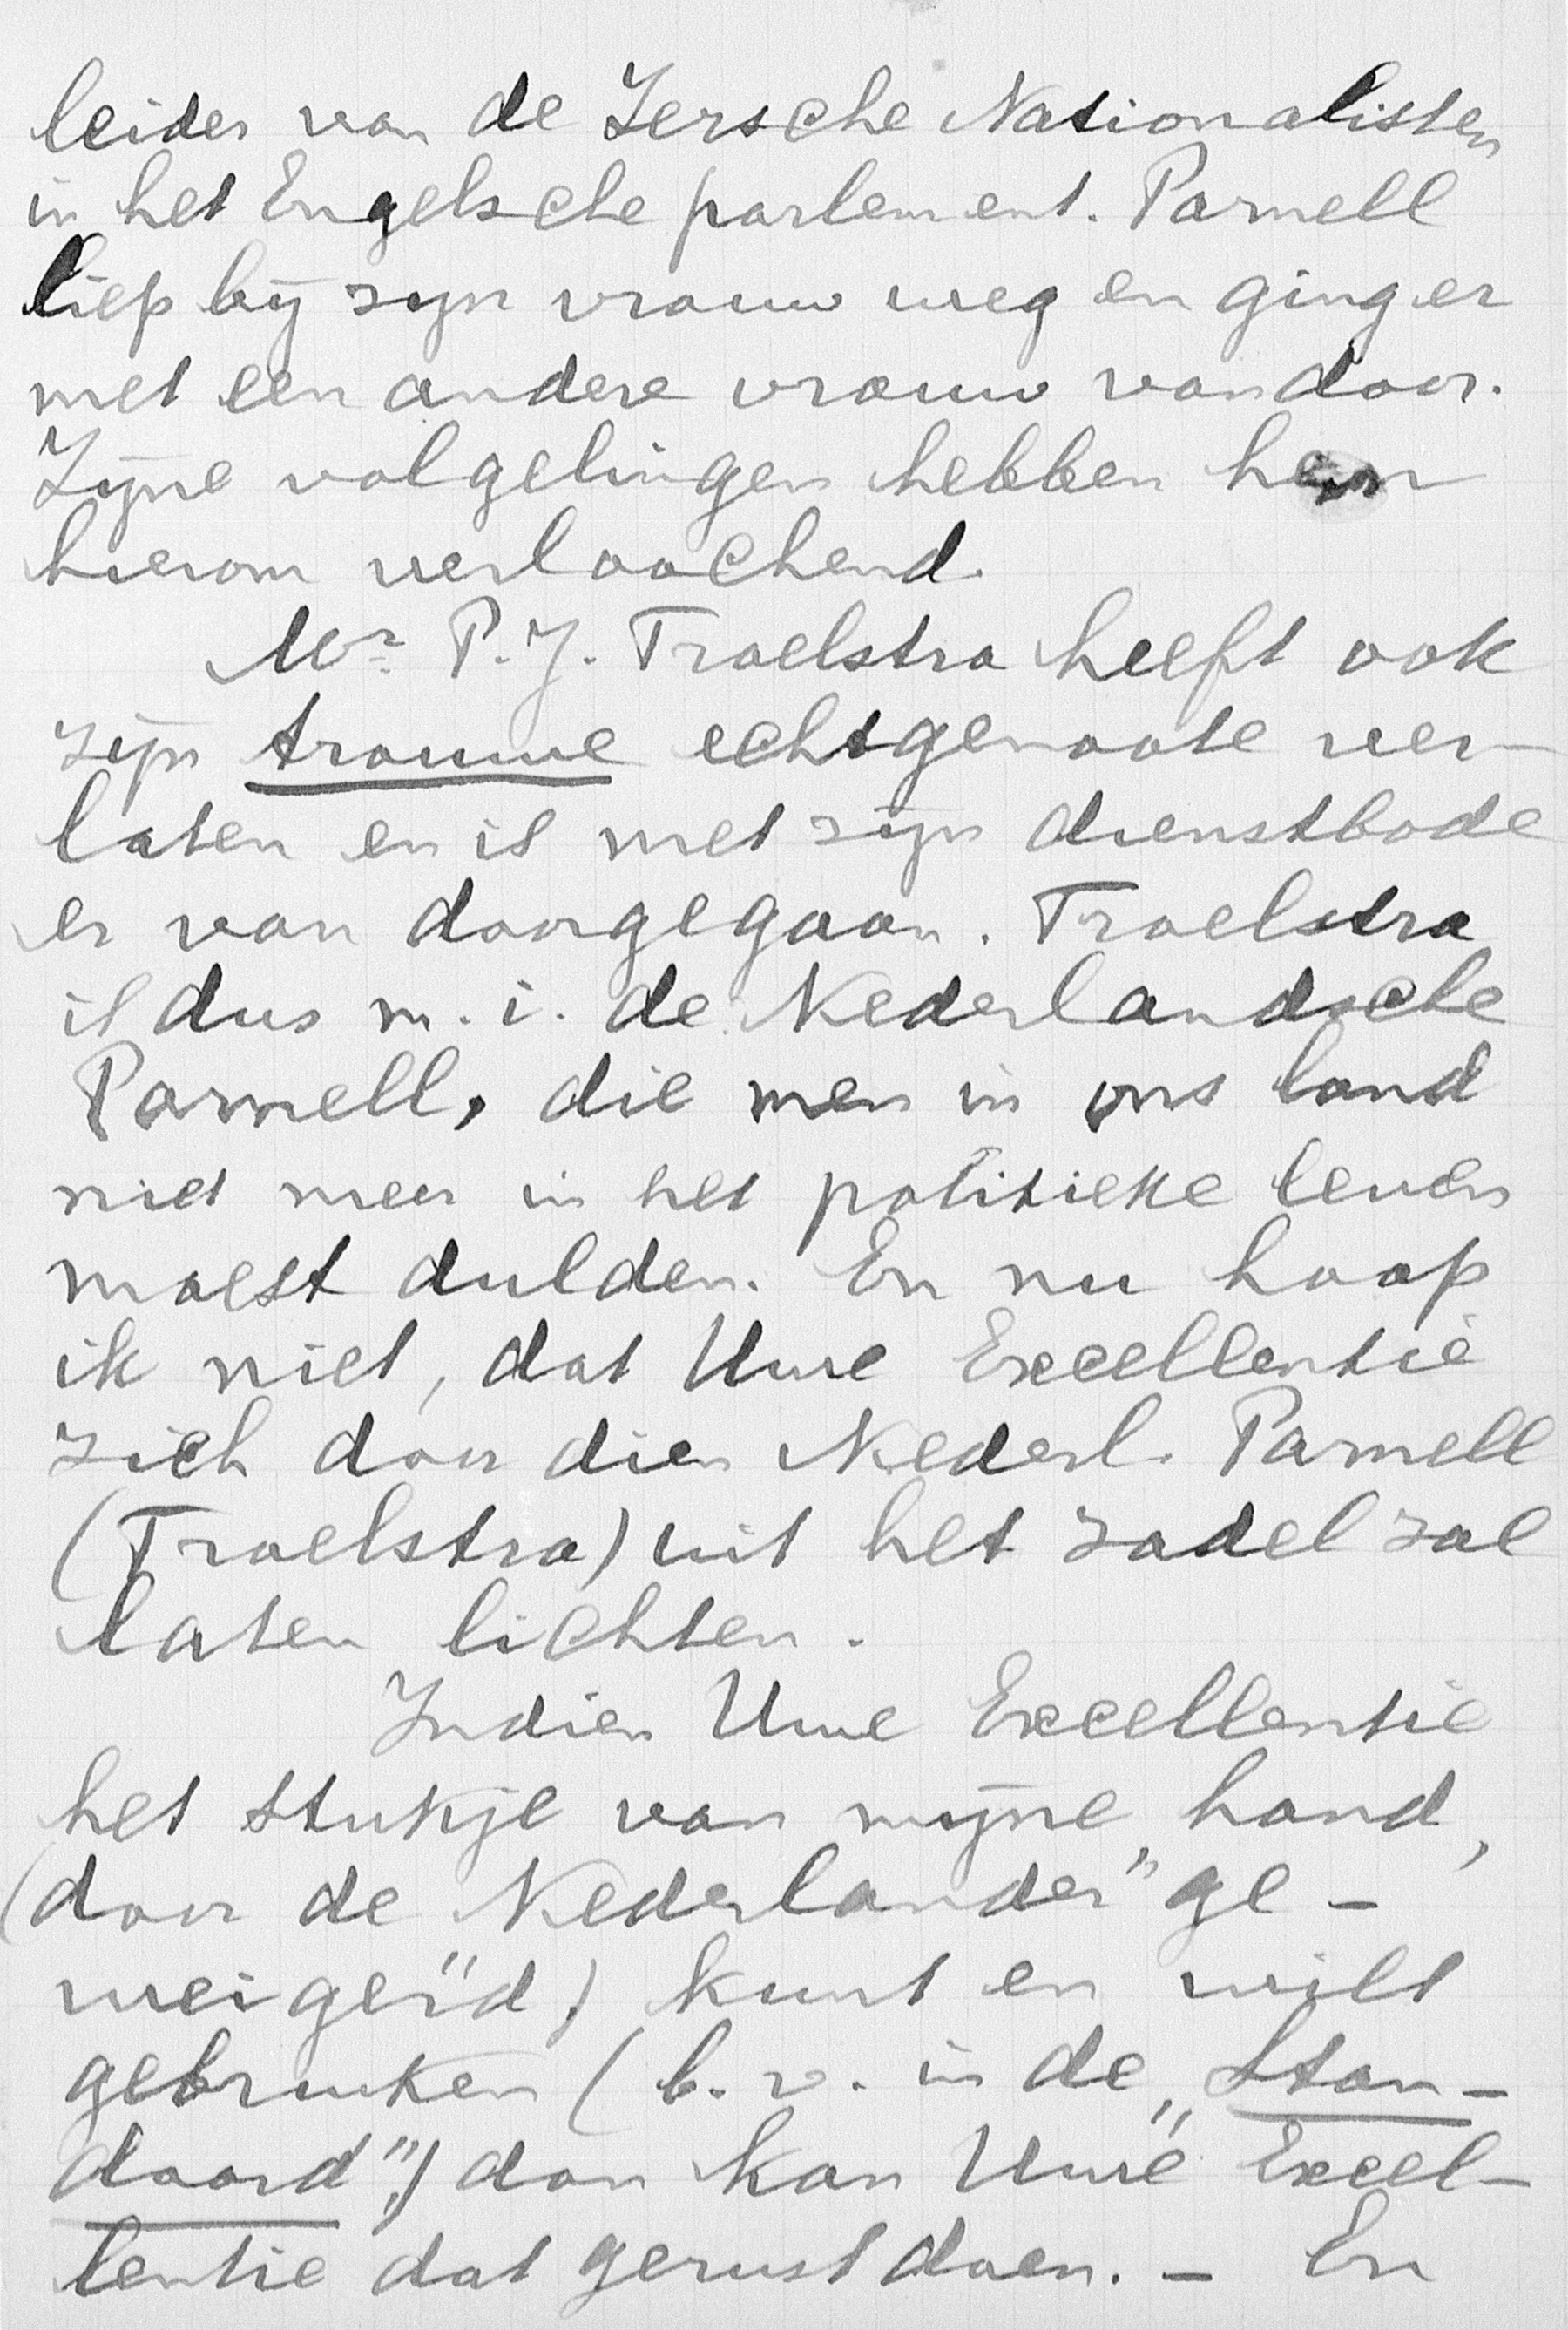 leider van de Iersche Nationalisten
in het Engelsche parlement. Parnell
liep bij zijn vrouw weg en ging er
met een andere vrouw vandoor.
Zijne volgelingen hebben hem
hierom verloochend.
Mr. P. J. Troelstra heeft ook
zijn trouwe echtgenoote ver-
laten en is met zijn dienstbode
er van doorgegaan. Troelstra
is dus m. i. de Nederlandsche
Parnell, die men in ons land
niet meer in het politieke leven
moest dulden. En nu hoop
ik niet, dat Uwe Excellentie
zich door dien Nederl. Parnell
(Troelstra) uit het zadel zal
laten lichten.
Indien Uwe Excellentie
het stukje van mijne hand,
(door de Nederlander" ge-
weigerd) kunt en wilt
gebruiken (b. v. in de „Stan-
daard") dan kan Uwe Excel-
lentie dat gerust doen. - En